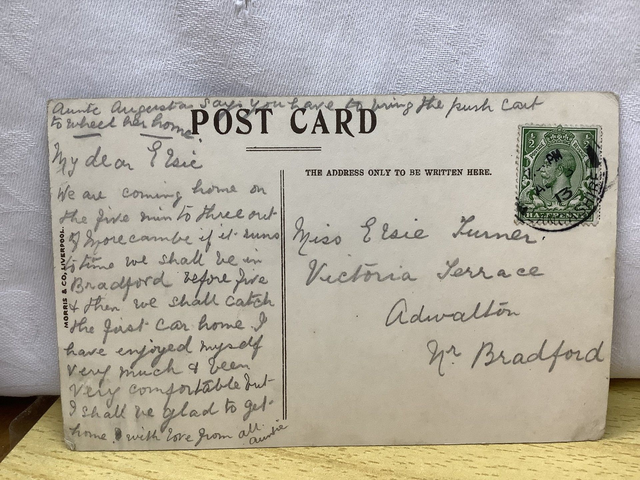 Aunte Augustas says you have to bring the push cart
to wheel her home.
POST CARD
My dear Elsie
We are coming home on
the five min to three out
of Morecambe if it runs
to time we shall be in
Bradford before five
& then we shall catch
the first car home. I
have enjoyed myself
very much & been
very comfortable but
I shall be glad to get
home. with love from all.
Auntie
MORRIS & CO, LIVERPOOL.
THE ADDRESS ONLY TO BE WRITTEN HERE.
Miss Elsie Turner.
Victoria Terrace
Adwalton
Nr Bradford
HALFPENNY
PM
13